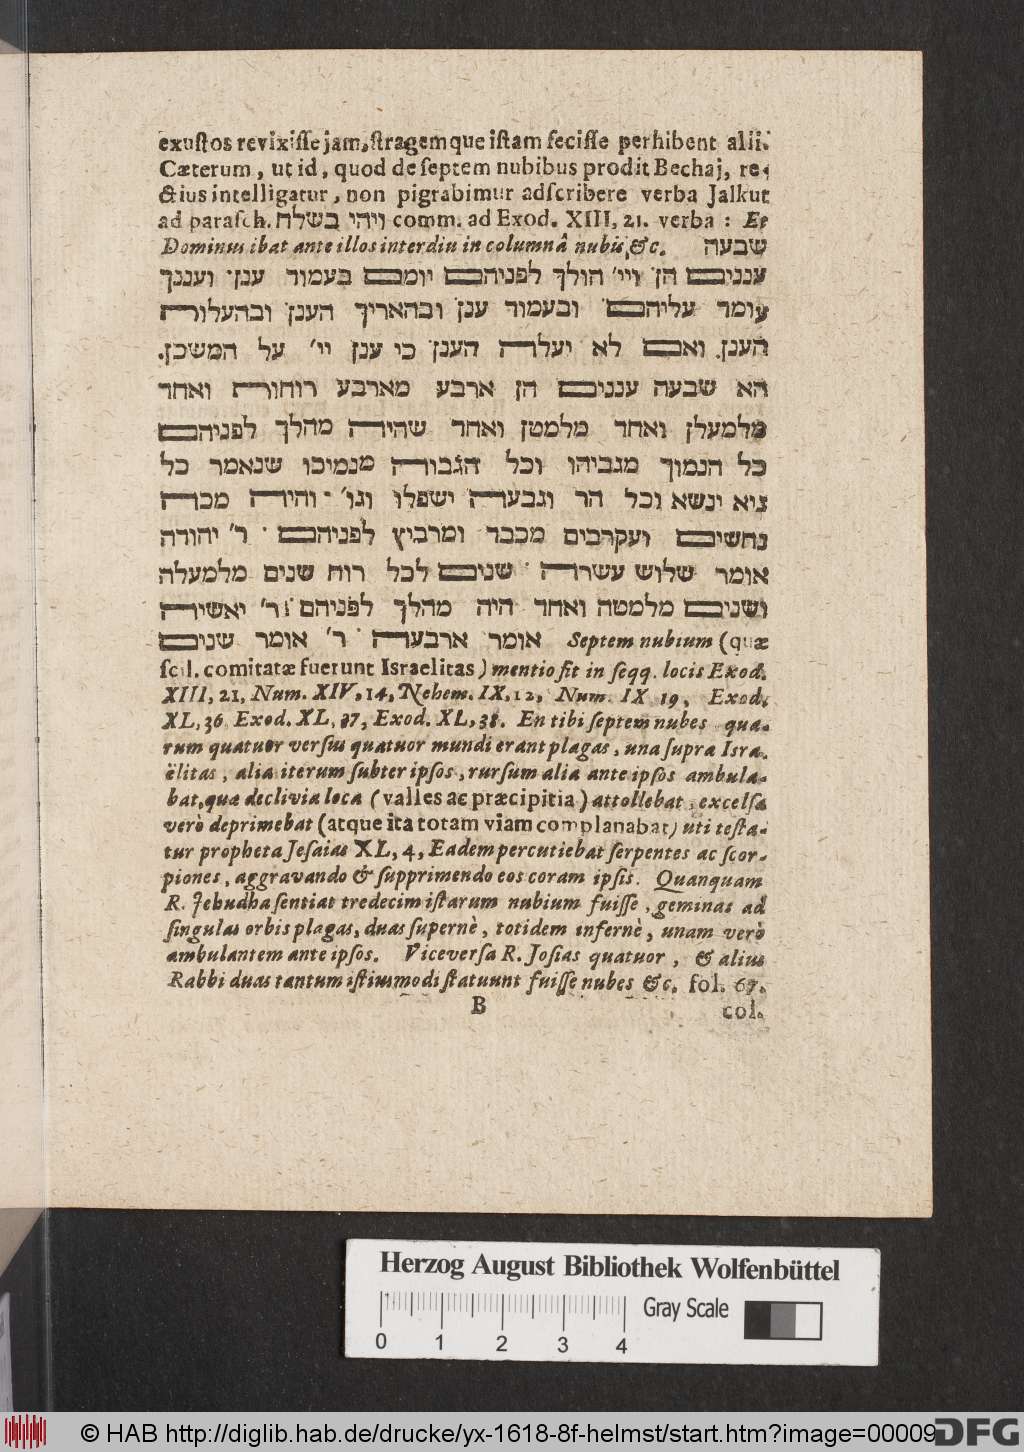 exuſtos revixiſſe jam, ſtragemque iſtam feciſſe perhibent alii.
Cæterum, ut id, quod de ſeptem nubibus prodit Bechaj, re-
ctius intelligatur, non pigrabimur adſcribere verba Jalkut
ad paraſch. ויהי בשלח comm. ad Exod. XIII, 21. verba: Et
Dominus ibat ante illos interdiu in columnâ nubis, &c. שבעה
ענניםהן ויי׳ הולך לפניהם יומם בעמוד ענן· ועננך
עומד עליהם ובעמוד ענן ובהאריך הענן ובהעלות
הענן. ואם לא יעלה הענן כי ענן יי׳ על המשכן.
הא שבעה עננים הן ארבע מארבע רוחות ואחד
מלמעלן ואחד מלמטן ואחד שהיה מהלך לפניהם
כל הנמוך מגביהו וכל הגבוה מנמיכו שנאמר כל
ציא ינשא וכל הר וגבעה ישפלו וגו׳· והיה מכה
נחשים ועקרבים מכבד ומרביץ לפניהם· ר׳ יהודה
אומר שלוש עשרה· שנים לכל רוח שנים מלמעלה
ושנים מלמטה ואחד היה מהלך לפניהם: ר׳ יאשיה
אומר ארבעה· ר׳ אומר שנים Septem nubium (quæ
ſcil. comitatæ fuerunt Israelitas) mentio fit in ſeqq. locis Exod.
XIII, 21, Num. XIV, 14, Nehem. IX, 12, Num. IX 19, Exod.
XL, 36 Exod. XL, 37, Exod. XL, 38. En tibi ſeptem nubes qua-
rum quatuor verſus quatuor mundi erant plagas, una ſupra Isra-
ëlitas, alia iterum ſubter ipſos, rurſum alia ante ipſos ambula-
bat, quæ declivia loca (valles ac præcipitia) attollebat, excelſa
verò deprimebat (atque ita totam viam complanabat) uti teſta-
tur propheta Jeſaias XL, 4, Eadem percutiebat ſerpentes ac ſcor-
piones, aggravando & ſupprimendo eos coram ipſis. Quanquam
R. Jehudha ſentiat tredecim iſtarum nubium fuiſſe, geminas ad
ſingulas orbis plagas, duas ſupernè, totidem infernè, unam verò
ambulantem ante ipſos. Viceverſa R. Joſias quatuor, & alius
Rabbi duas tantum iſtiusmodi ſtatuunt fuiſſe nubes &c. fol. 67.
B col.
Herzog August Bibliothek Wolfenbüttel
Gray Scale
0 1 2 3 4
© HAB http://diglib.hab.de/drucke/yx-1618-8f-helmst/start.htm?image=00009
DFG